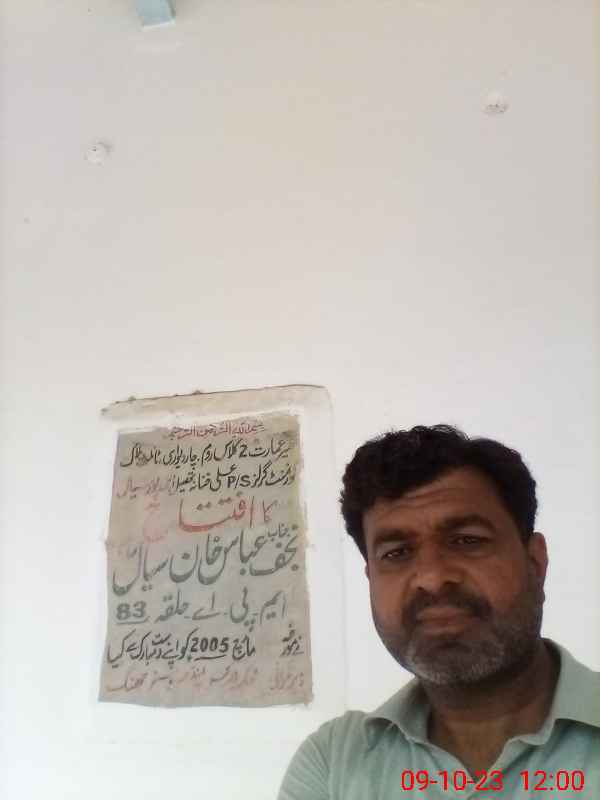 بسم اللہ الرحمن الرحیم
تعمیر عمارت 2 کلاس روم. چار دیواری. ٹائلٹ بلاک
گورنمنٹ گرلز P/S علی خنانہ تحصیل سیال
کا افتتاح
جناب نجف عباس خان سیال
ایم. پی. اے حلقہ 83
نے مورخہ مارچ 2005 کو اپنے دست مبارک سے کیا
جھنگ
09-10-23 12:00